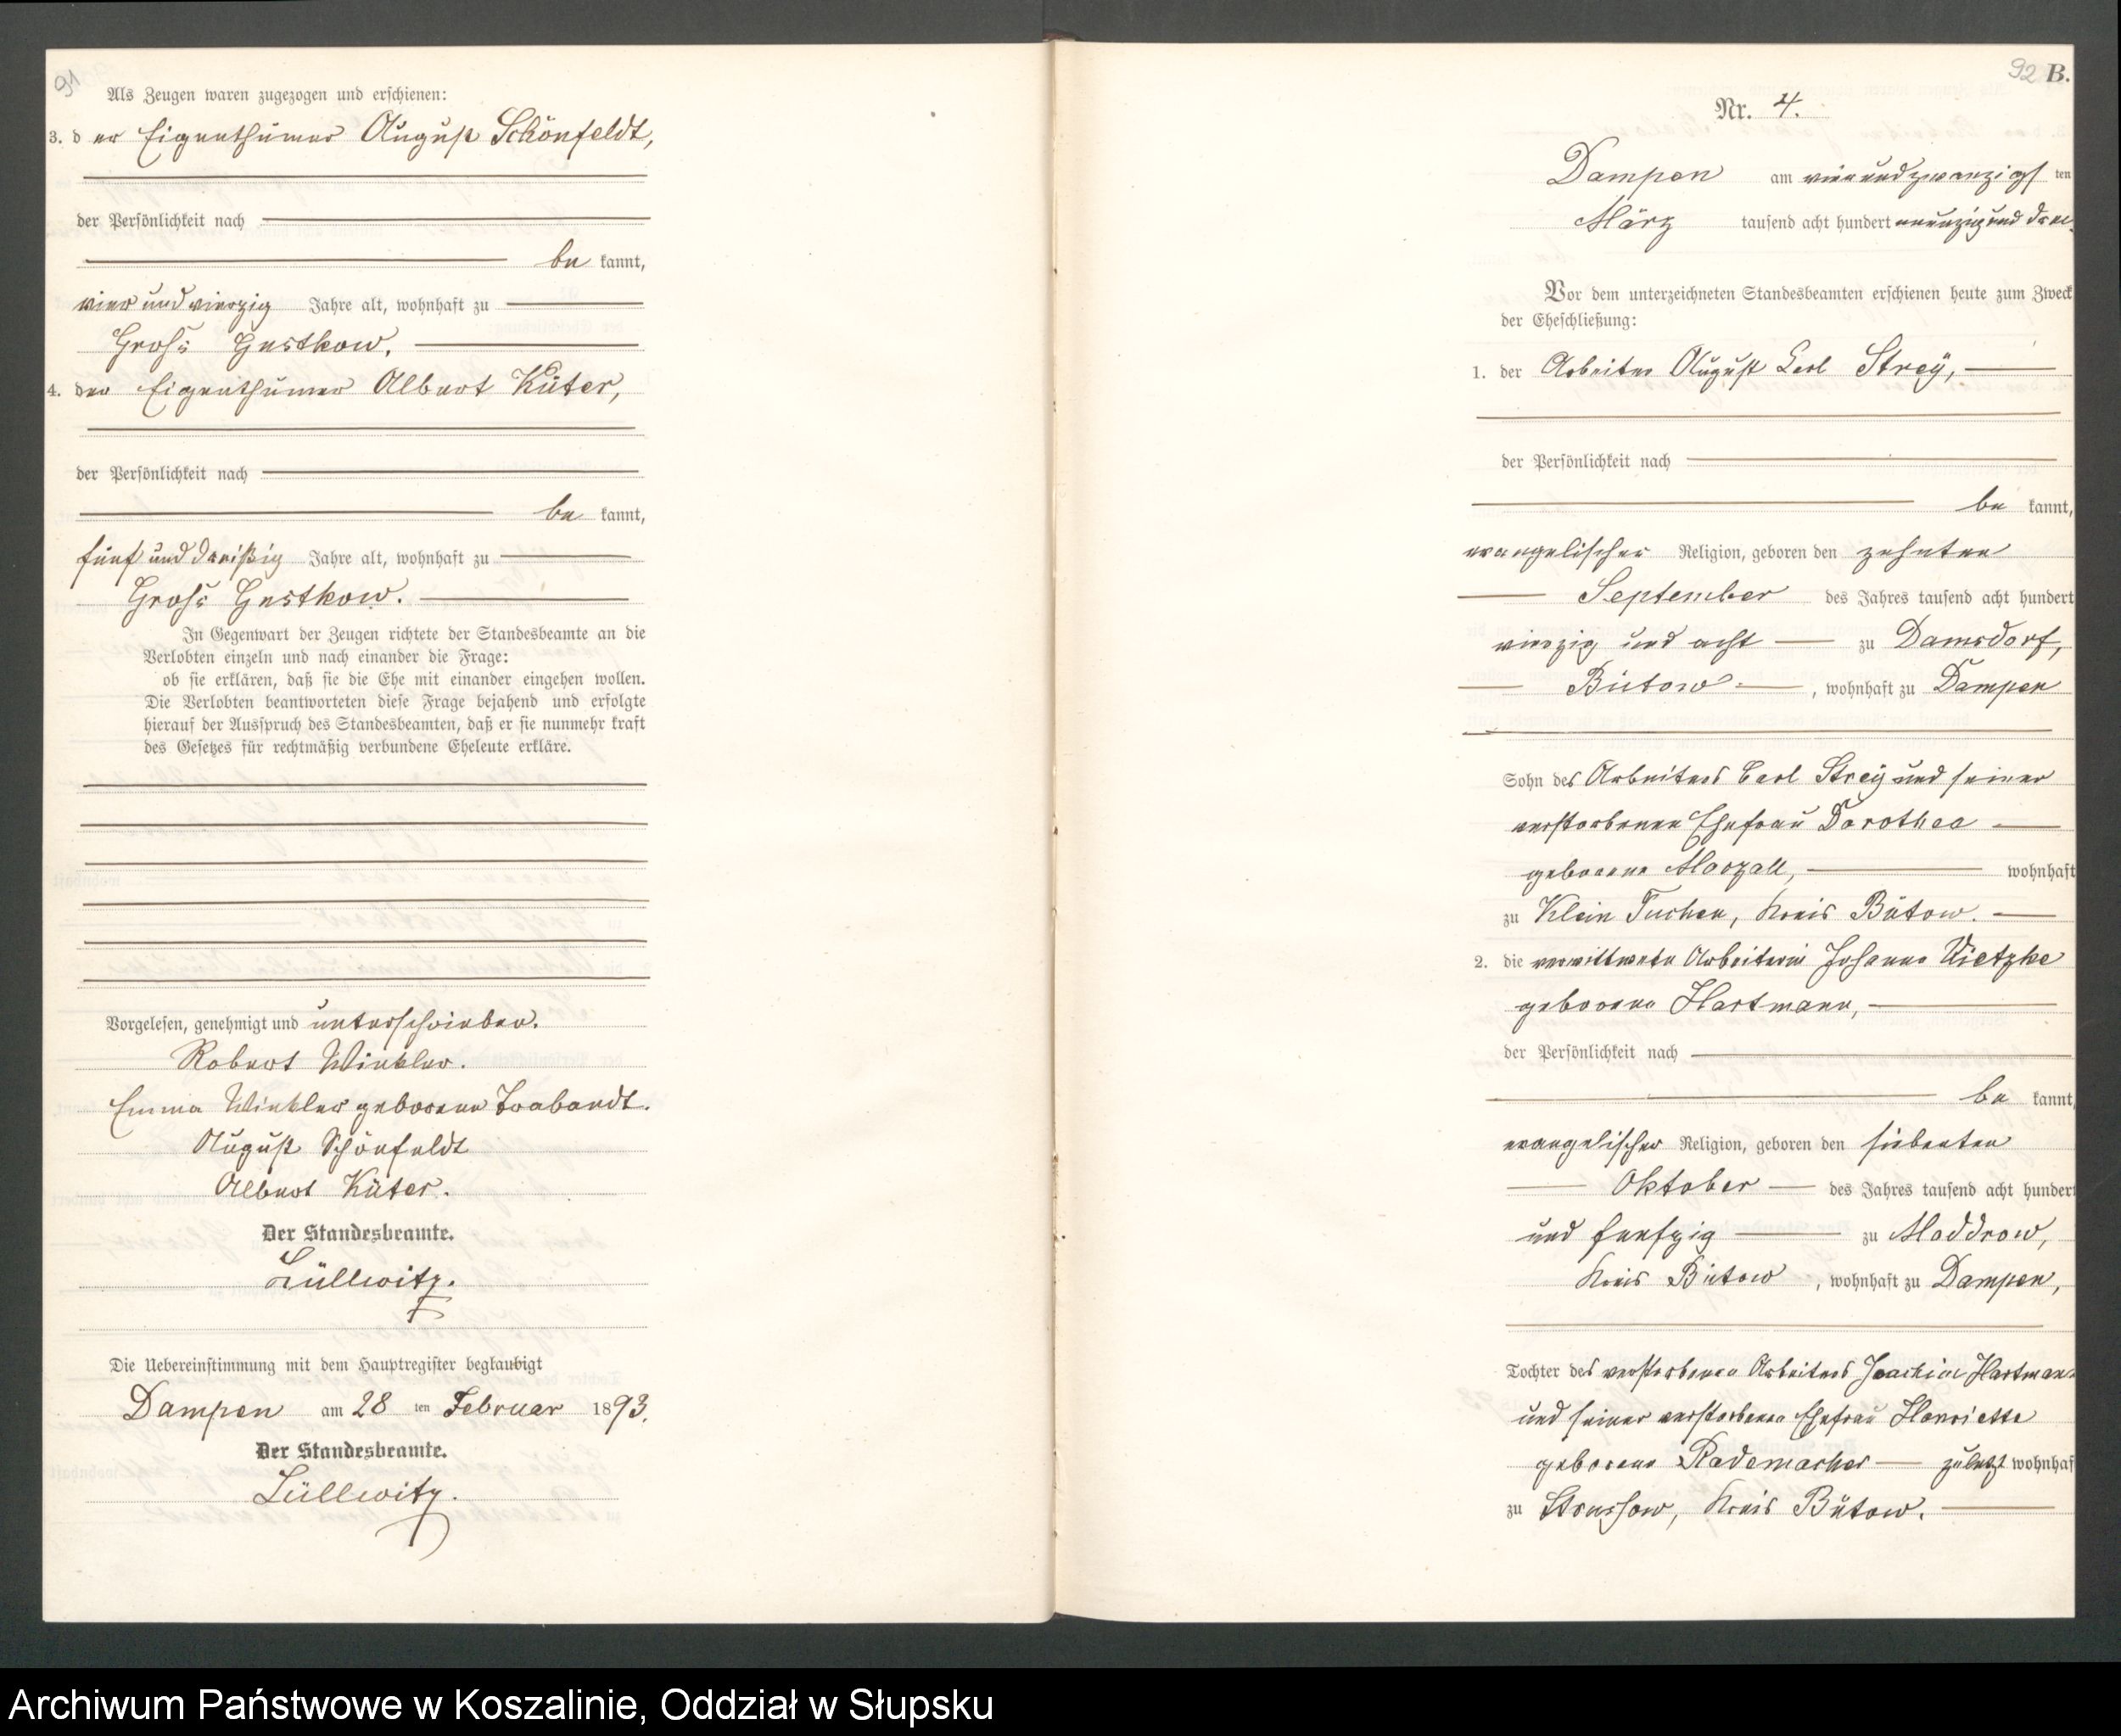 91
Als Zeugen waren zugezogen und erschienen:
3. der Eigenthümer August Schönfeldt,
der Persönlichkeit nach
be kannt,
vier und vierzig Jahre alt, wohnhaft zu
Gross Gustkow.
4. der Eigenthümer Albert Küter,
der Persönlichkeit nach
be kannt,
fünf und dreißig Jahre alt, wohnhaft zu
Gross Gustkow.
In Gegenwart der Zeugen richtete der Standesbeamte an die
Verlobten einzeln und nach einander die Frage:
ob sie erklären, daß sie die Ehe mit einander eingehen wollen.
Die Verlobten beantworteten diese Frage bejahend und erfolgte
hierauf der Ausspruch des Standesbeamten, daß er sie nunmehr kraft
des Gesetzes für rechtmäßig verbundene Eheleute erkläre.
Vorgelesen, genehmigt und unterschrieben.
Robert Winkler.
Emma Winkler geborene Trabandt.
August Schönfeldt
Albert Küter.
Der Standesbeamte.
Züllwitz.
Die Uebereinstimmung mit dem Hauptregister beglaubigt
Dampen am 28 ten Februar 1893.
Der Standesbeamte.
Züllwitz.
92 B.
Nr. 4.
Dampen am vierundzwanzigsten
März tausend acht hundert neunzig und drei.
Vor dem unterzeichneten Standesbeamten erschienen heute zum Zweck
der Eheschließung:
1. der Arbeiter August Carl Streÿ,
der Persönlichkeit nach
be kannt,
evangelischer Religion, geboren den zehnten
September des Jahres tausend acht hundert
vierzig und acht zu Damsdorf,
Bütow, wohnhaft zu Dampen
Sohn des Arbeiters Carl Streÿ und seiner
verstorbenen Ehefrau Dorothea
geborene Marzall, wohnhaft
zu Klein Tuchen, Kreis Bütow.
2. die verwittwete Arbeiterin Johanne Wietzke
geborene Hartmann,
der Persönlichkeit nach
be kannt,
evangelischer Religion, geboren den siebenten
Oktober des Jahres tausend acht hundert
und funfzig zu Moddrow,
Kreis Bütow, wohnhaft zu Dampen,
Tochter des verstorbenen Arbeiters Joachim Hartmann
und seiner verstorbenen Ehefrau Henriette
geborene Rademacher zuletzt wohnhaft
zu Strussow, Kreis Bütow.
Archiwum Państwowe w Koszalinie, Oddział w Słupsku